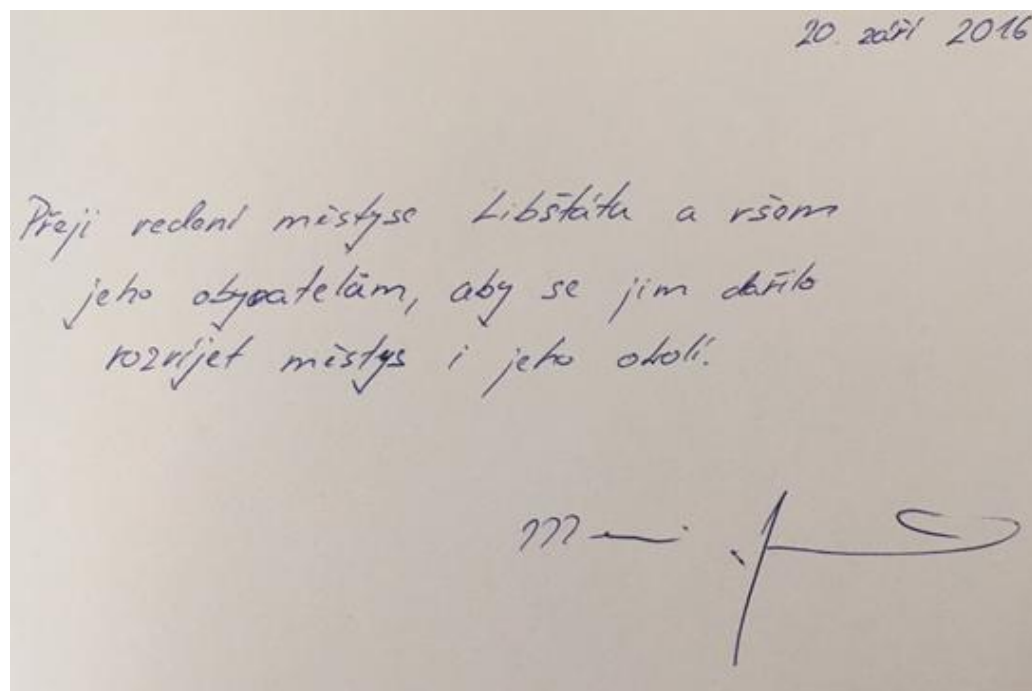 20. září 2016
Přeji vedení městyse Libštátu a všem
jeho obyvatelům, aby se jim dařilo
rozvíjet městys i jeho okolí.